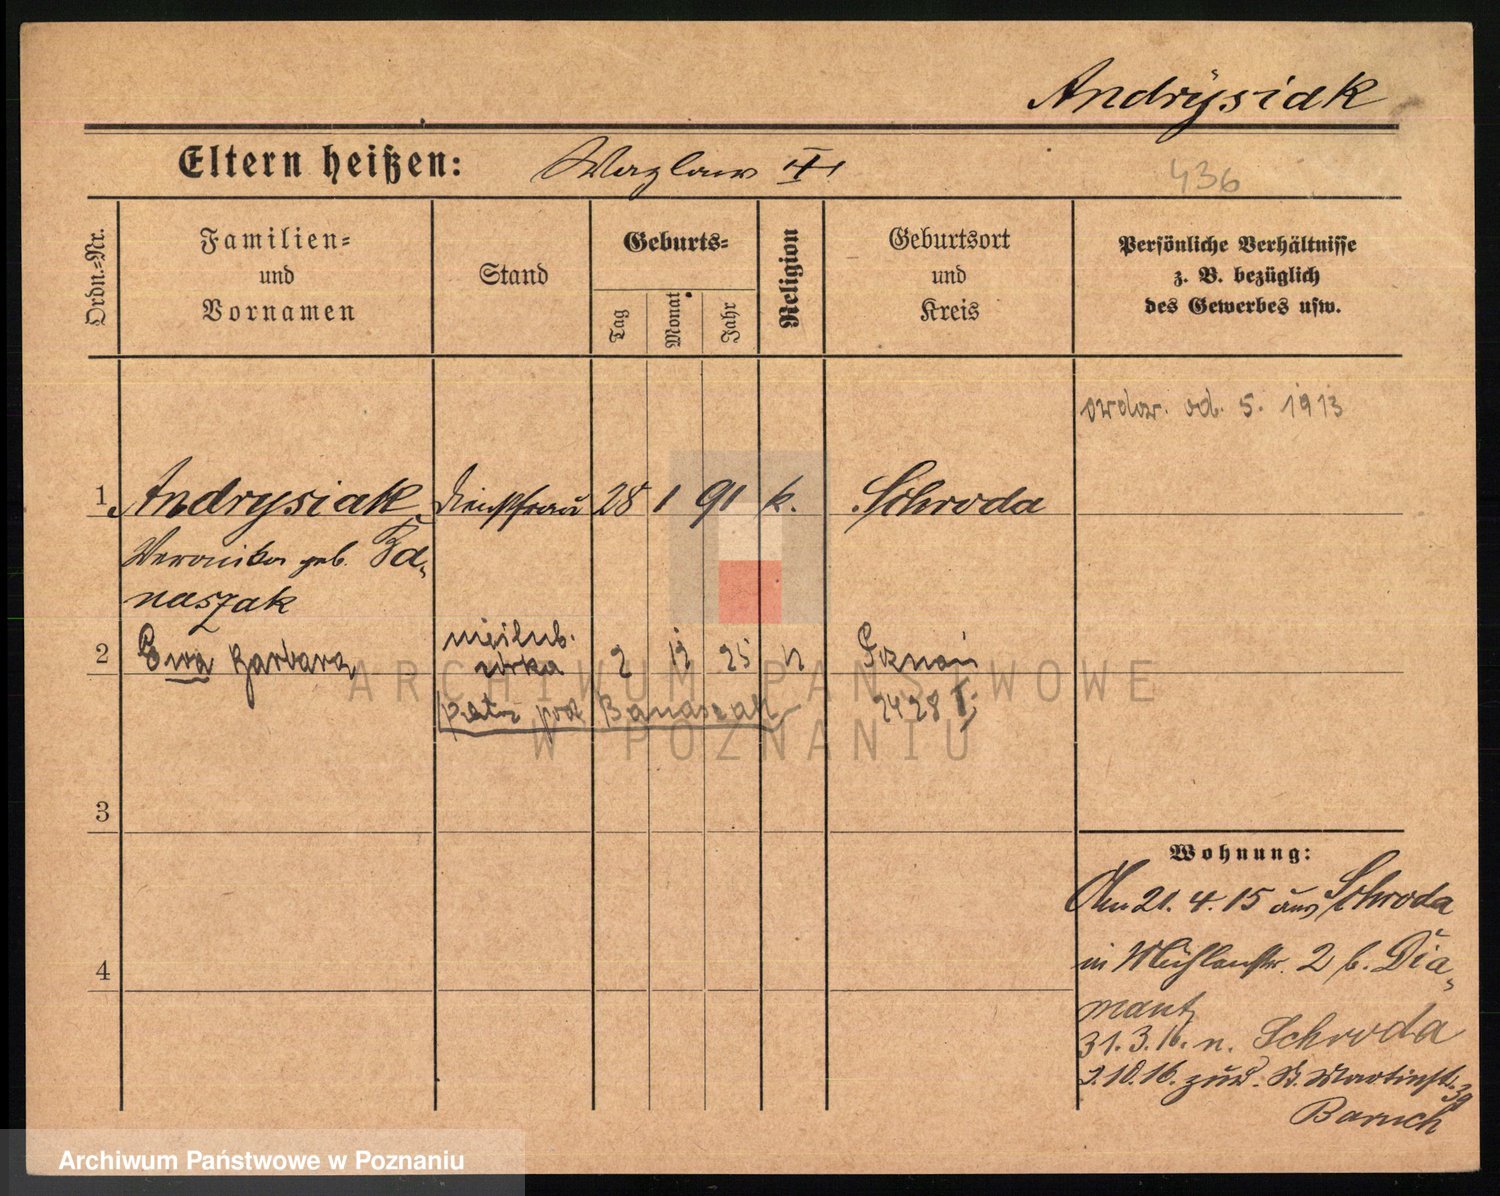 Andrysiak
Eltern heißen: Wazlaw III
436
Ordn.=Nr.
Familien=
und
Vornamen
Stand
Geburts=
Tag
Monat
Jahr
Religion
Geburtsort
und
Kreis
Persönliche Verhältnisse
z. B. bezüglich
des Gewerbes usw.
owdow. od. 5. 1913
1 Andrysiak Dienstfrau 28 1 91 k. Schroda
Veronika geb. Ba-
naszak
2 Ewa Barbara nieślub. córka 2 12 25 k Poznań
patrz pod Banaszak 2428
3
4
Wohnung:
Am 21. 4. 15 aus Schroda
in Mühlenstr. 2 b. Dia-
mant
31. 3. 16. n. Schroda
2.10.16. zur. St. Martinstr. 39
Baruch
ARCHIWUM PAŃSTWOWE
W POZNANIU
Archiwum Państwowe w Poznaniu